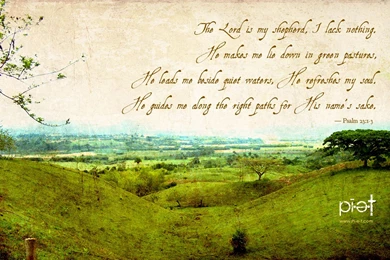 The Lord is my shepherd, I lack nothing.
He makes me lie down in green pastures,
He leads me beside quiet waters, He refreshes my soul.
He guides me along the right paths for His name's sake.
— Psalm 23:1-3